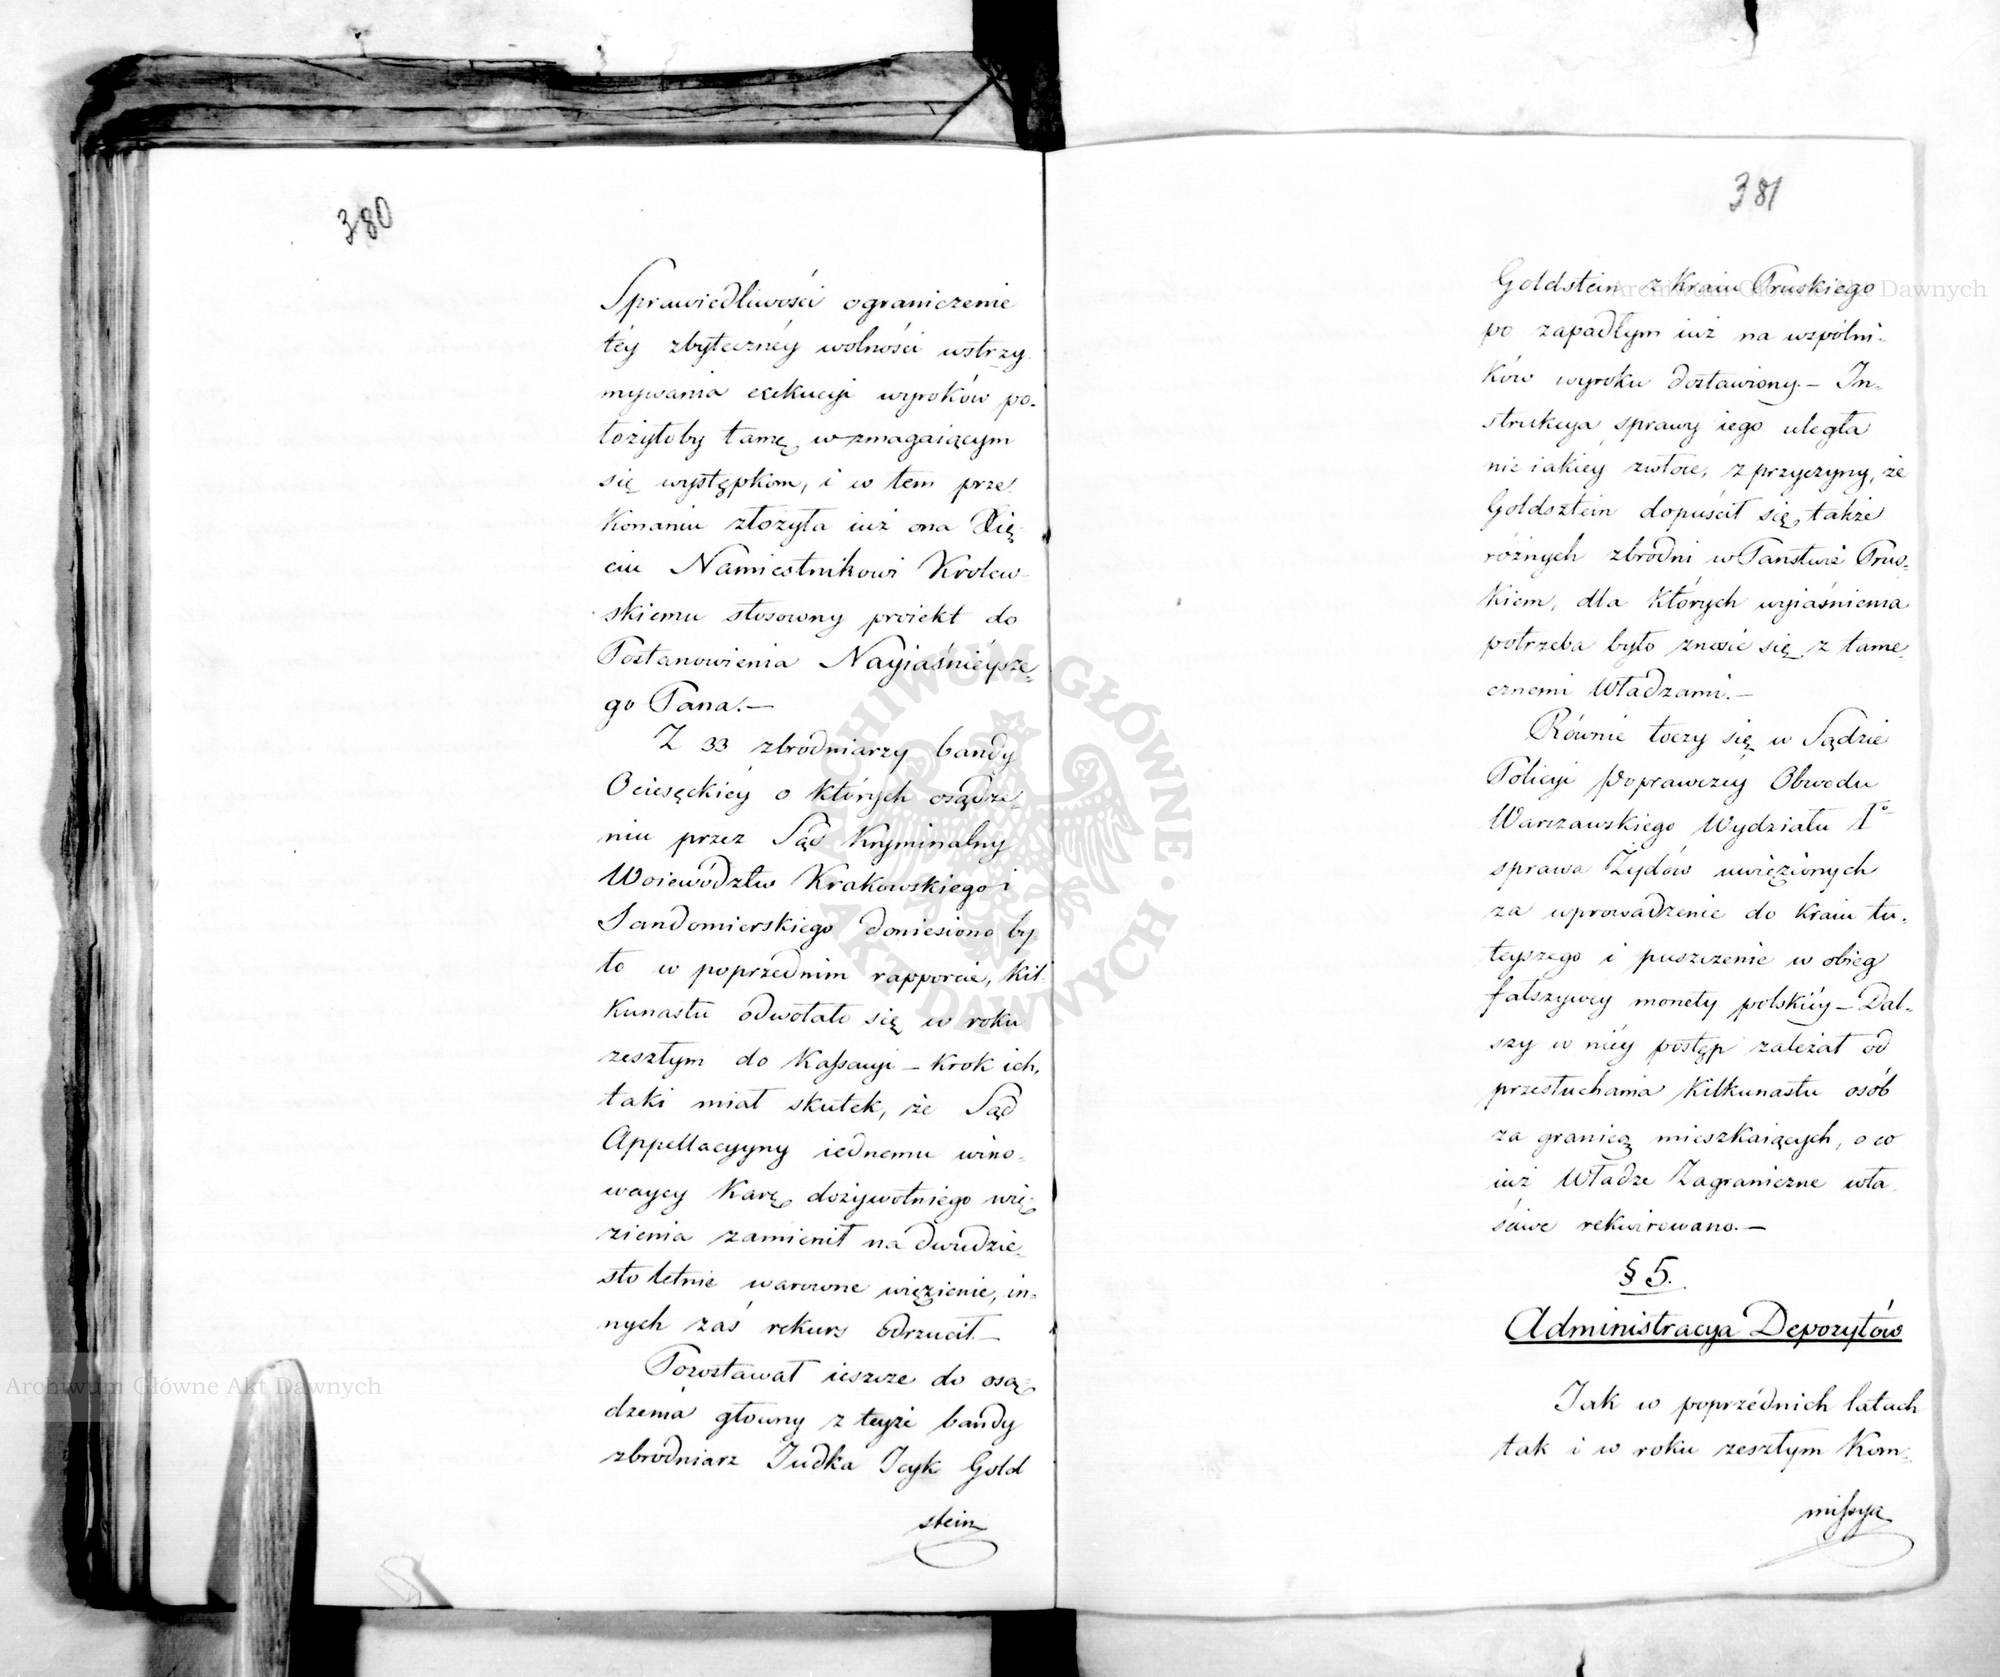 380
Sprawiedliwości ograniczenie
téy zbyteczney wolności wstrzy-
mywania exekucyi wyroków po-
łożyłoby tamę wzmagaiącym
się występkom, i w tem prze-
konaniu złożyła iuż ona Xię-
ciu Namiestnikowi Krolew-
skiemu stosowny proiekt do
Postanowienia Nayiaśnieysze-
go Pana.—
Z 33 zbrodniarzy bandy
Ociesęckiéy o których osądze-
niu przez Sąd Kryminalny
Woiewództw Krakowskiego i
Sandomierskiego doniesiono by-
ło w poprzednim rapporcie, kil-
kunastu odwołało się w roku
zeszłym do Kassacyi — krok ich,
taki miał skutek, że Sąd
Appellacyyny iednemu wino-
waycy karę dożywotniego wię-
zienia zamienił na dwudzie-
sto letnie warowne więzienie, in-
nych zaś rekurs odrzucił —
Pozostawał ieszcze do osą-
dzenia główny z teyże bandy
zbrodniarz Judka Icyk Gold
stein
381
Goldstein z Kraiu Pruskiego
po zapadłym iuż na wspólni-
ków wyroku dostawiony.— In-
strukcya sprawy iego uległa
nieiakiey zwłoce, z przyczyny, że
Goldsztein dopuścił się także
różnych zbrodni w Państwie Prus-
kiem, dla których wyiaśnienia
potrzeba było znosić się z tame-
cznemi Władzami.—
Równie toczy się w Sądzie
Policyi Poprawczéy Obwodu
Warszawskiego Wydziału Iº
sprawa Żydów uwięzionych
za uprowadzenie do kraiu tu-
teyszego i puszczenie w obieg
fałszywey monety polskiéy — Dal-
szy w niéy postęp zależał od
przesłuchania kilkunastu osób
za granicą mieszkaiących, o co
iuż Władze Zagraniczne wła-
ściwe rekwirowano.—
§ 5.
Administracya Depozytów
Jak w poprzednich latach
tak i w roku zeszłym Kom-
missya
Archiwum Główne Akt Dawnych
Archiwum Główne Akt Dawnych
ARCHIWUM GŁÓWNE AKT DAWNYCH